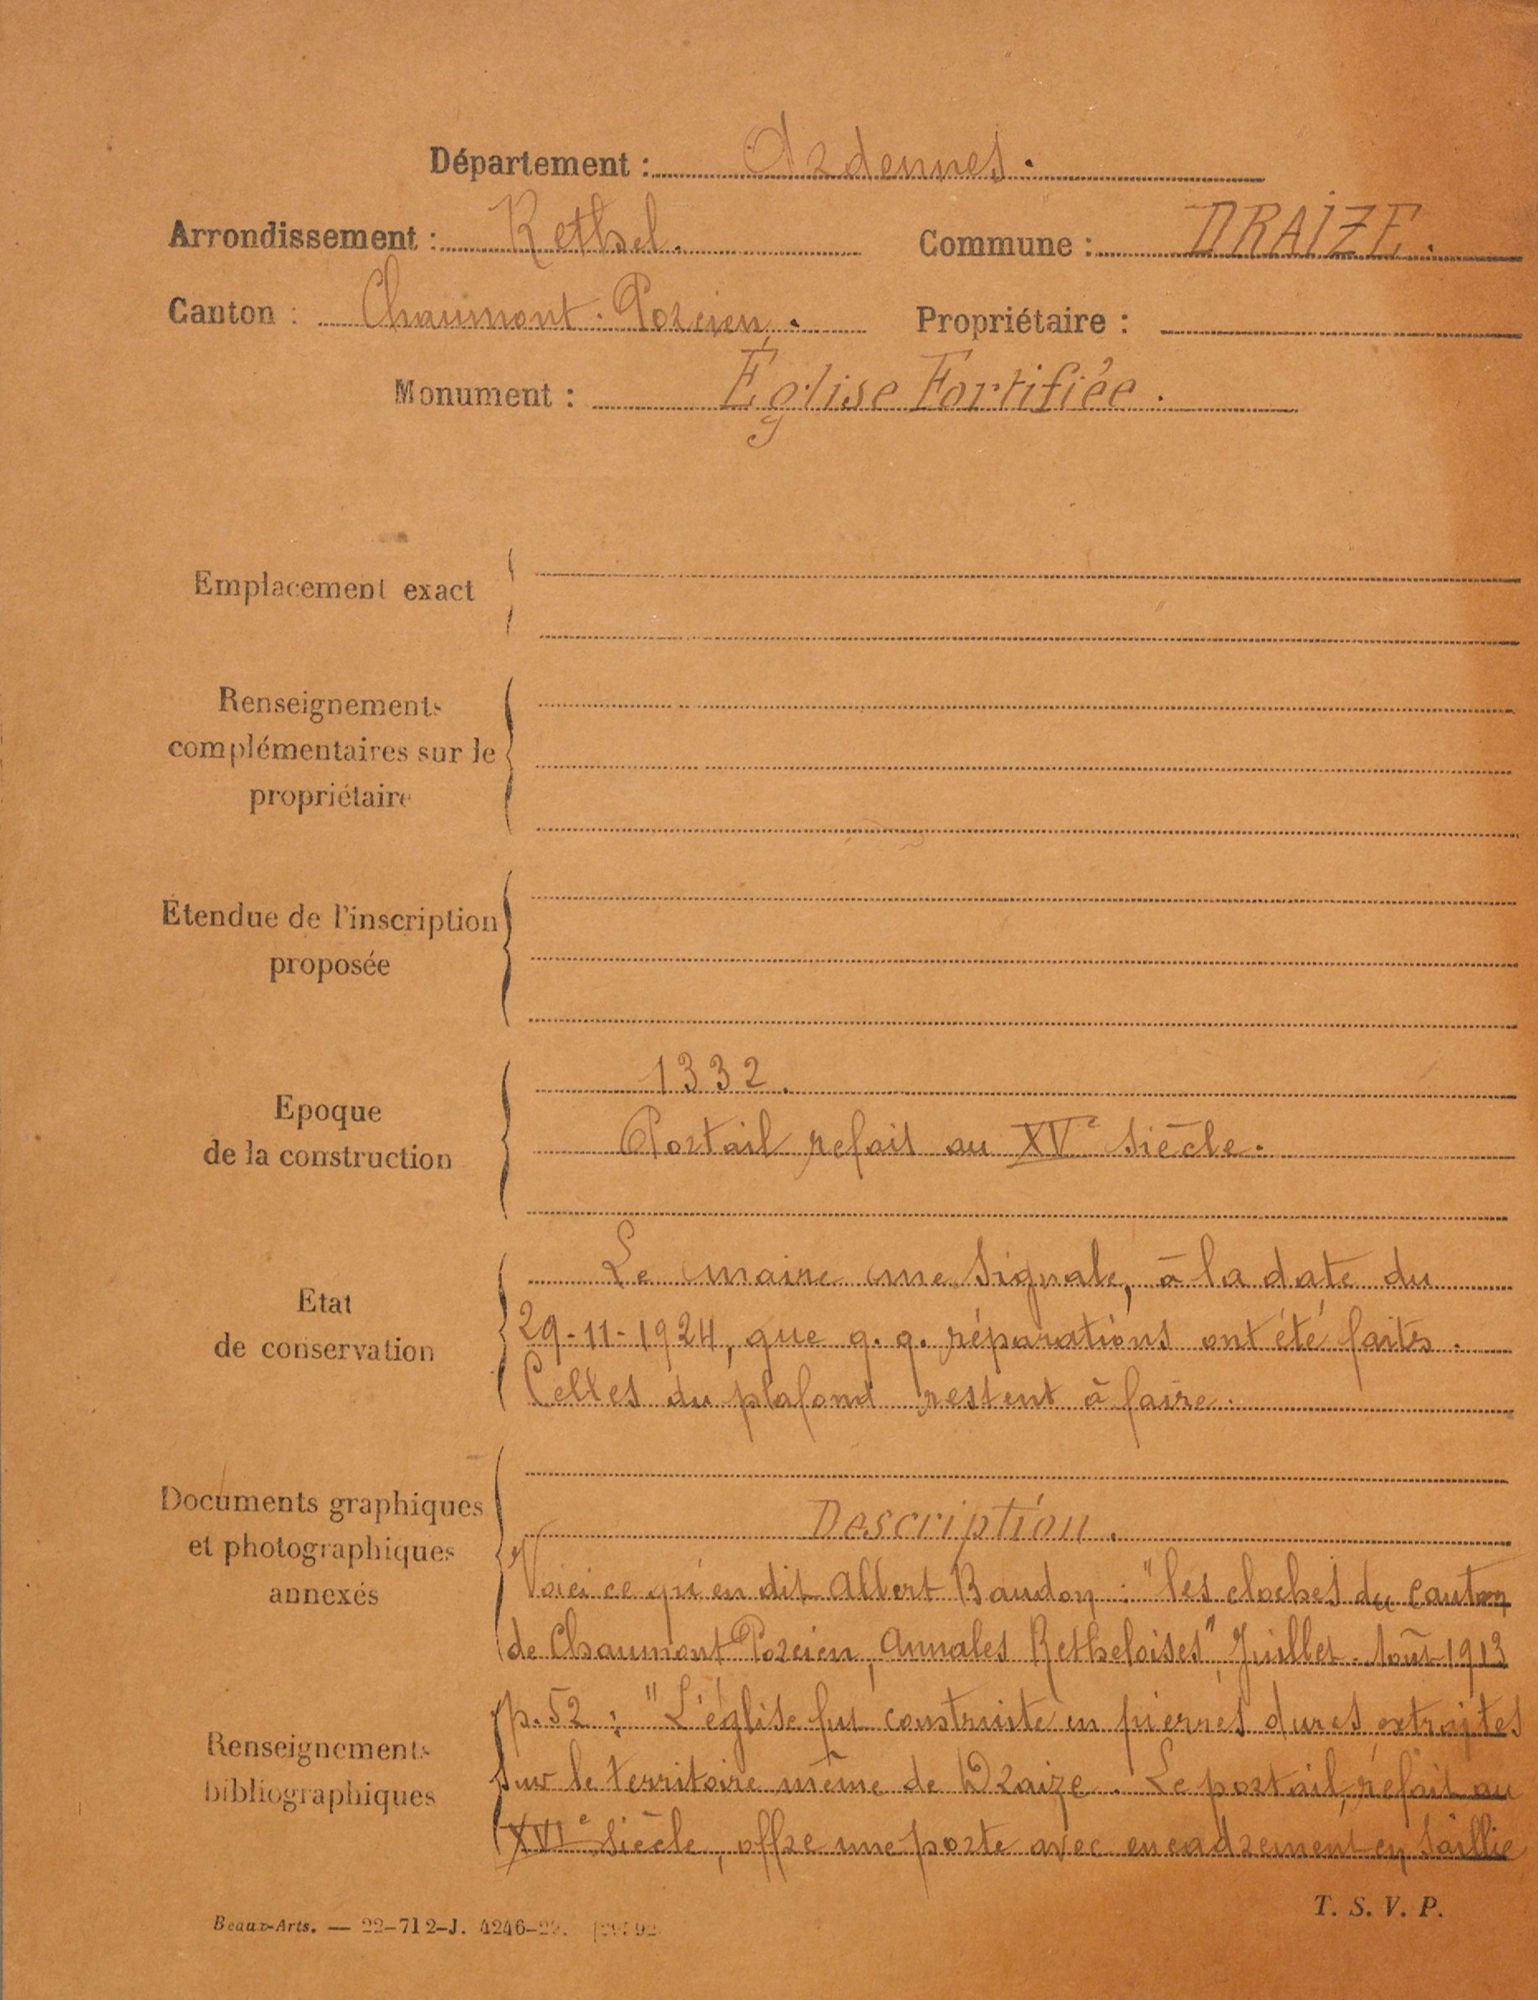 Département : Ardennes.
Arrondissement : Rethel. Commune : DRAIZE.
Canton : Chaumont-Porcien. Propriétaire :
Monument : Église Fortifiée.
Emplacement exact
Renseignements
complémentaires sur le
propriétaire
Étendue de l'inscription
proposée
1332.
Epoque
Portail refait au XVe siècle.
de la construction
Le maire me signale, à la date du
Etat
29-11-1924, que q.q. réparations ont été faites.
de conservation
Celles du plafond restent à faire.
Documents graphiques
Description.
et photographiques
Voici ce qu'en dit Albert Baudon : "les cloches du canton
annexés
de Chaumont Porcien, Annales Retheloises", Juillet-Août 1913
p. 52 : "L'église fut construite en pierres dures extraites
Renseignements
sur le territoire même de Draize. Le portail, refait au
bibliographiques
XVIe siècle, offre une porte avec encadrement en saillie
T. S. V. P.
Beaux-Arts. — 22-712-J. 4246-22.